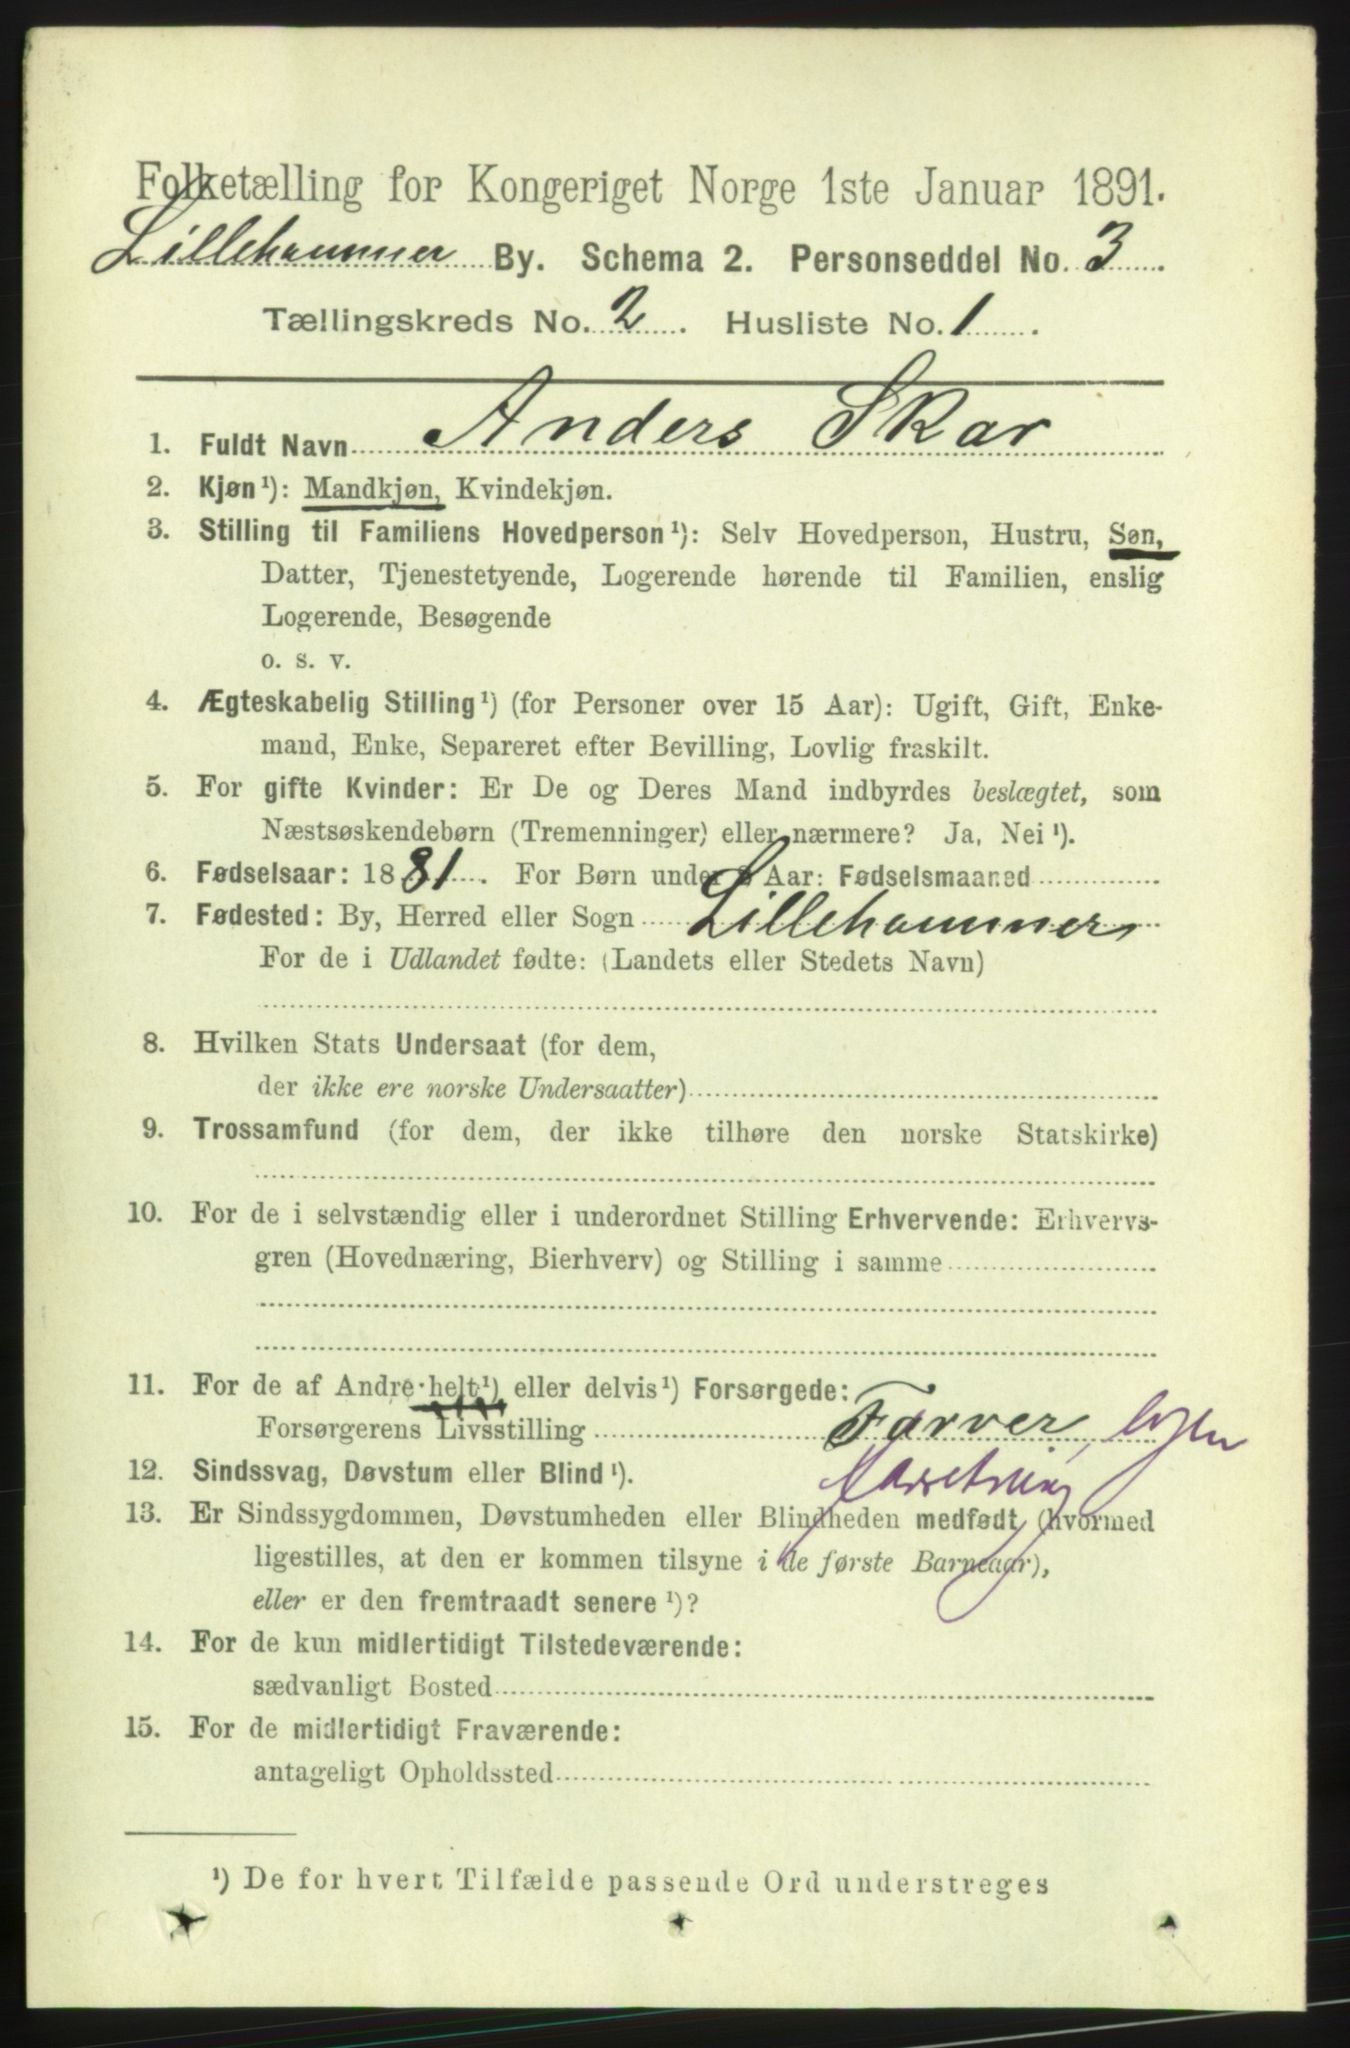 Folketælling for Kongeriget Norge 1ste Januar 1891.
Lillehammer By. Schema 2. Personseddel No. 3.
Tællingskreds No. 2. Husliste No. 1.
1. Fuldt Navn Anders Skar
2. Kjøn¹): Mandkjøn, Kvindekjøn.
3. Stilling til Familiens Hovedperson¹): Selv Hovedperson, Hustru, Søn,
Datter, Tjenestetyende, Logerende hørende til Familien, enslig
Logerende, Besøgende
o. s. v.
4. Ægteskabelig Stilling¹) (for Personer over 15 Aar): Ugift, Gift, Enke-
mand, Enke, Separeret efter Bevilling, Lovlig fraskilt.
5. For gifte Kvinder: Er De og Deres Mand indbyrdes beslægtet, som
Næstsøskendebørn (Tremenninger) eller nærmere? Ja, Nei¹).
6. Fødselsaar: 1881. For Børn under Aar: Fødselsmaaned
7. Fødested: By, Herred eller Sogn Lillehammer
For de i Udlandet fødte: (Landets eller Stedets Navn)
8. Hvilken Stats Undersaat (for dem,
der ikke ere norske Undersaatter)
9. Trossamfund (for dem, der ikke tilhøre den norske Statskirke)
10. For de i selvstændig eller i underordnet Stilling Erhvervende: Erhvervs-
gren (Hovednæring, Bierhverv) og Stilling i samme
11. For de af Andre helt¹) eller delvis¹) Forsørgede:
Forsørgerens Livsstilling Farver,
12. Sindssvag, Døvstum eller Blind¹).
13. Er Sindssygdommen, Døvstumheden eller Blindheden medfødt (hvormed
ligestilles, at den er kommen tilsyne i de første Barneaar),
eller er den fremtraadt senere¹)?
14. For de kun midlertidigt Tilstedeværende:
sædvanligt Bosted
15. For de midlertidigt Fraværende:
antageligt Opholdssted
¹) De for hvert Tilfælde passende Ord understreges